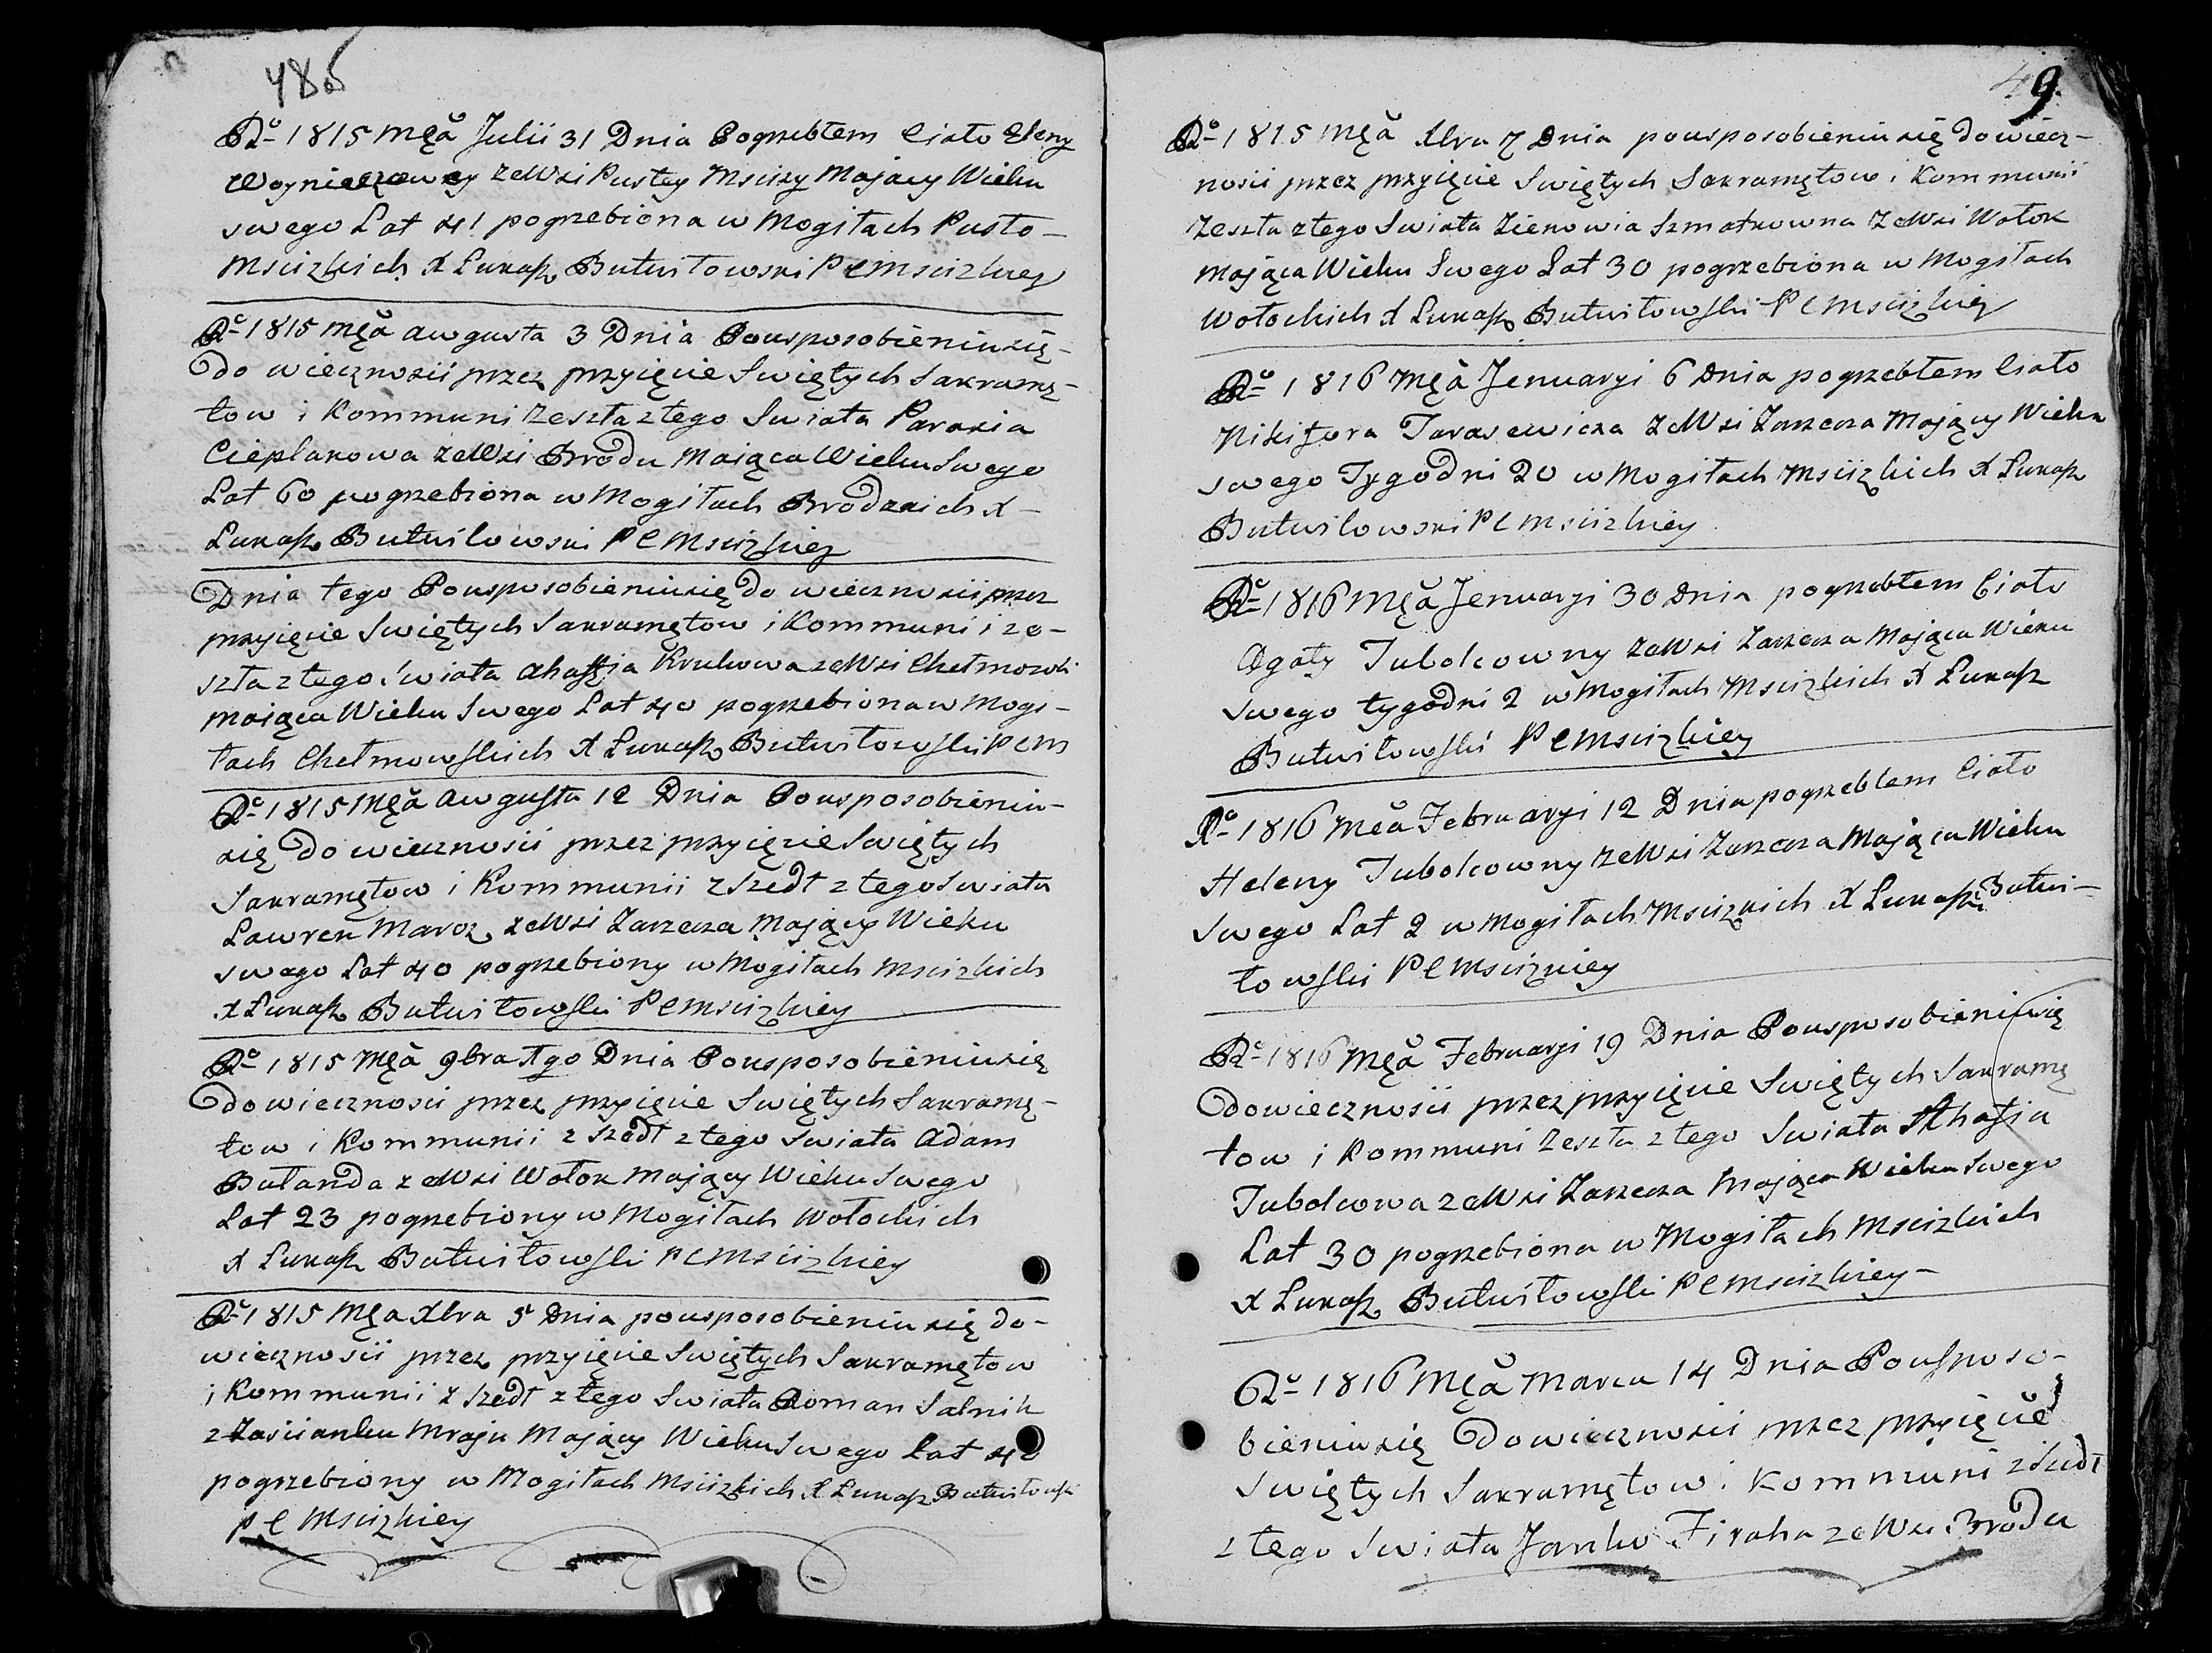 486
Ro 1815 Męa Julii 31 Dnia Pogrzebłem Ciało Eleny
Woyniczowey ze Wsi Pustey Mscizy Maiący Wieku
swego Lat 41 pogrzebiona w Mogiłach Pusto-
Mscizkich X Łukasz Butwiłowski P C Mscizkiey
Ro 1815 Męa Awgusta 3 Dnia Pousposobieniu się
do wiecznosii przez przyięcie Swiętych Sakramę-
tow i Kommuni Zeszła z tego Swiata Parasia
Cieplakowa ze Wsi Brodu Maiąca Wieku Swego
Lat 60 pogrzebiona w Mogiłach Brodzkich X
Łukasz Butwilowski P C Mscizkiey
Dnia tego Pousposobieniu się do wiecznosii przez
przyięcie Swiętych Sakramętow i Kommuni i ze-
szła z tego Swiata Ahafia Krukowa ze Wsi Chełmowki
maiąca Wieku Swego Lat 40 pogrzebiona w Mogi-
łach Chełmowskich X Łukasz Butwiłowski P C M
Ro 1815 Męa Awgusta 12 Dnia Pousposobieniu
się do wiecznosii przez przyięcie Swiętych
Sakramętow i Kommunii zszedł z tego Swiata
Lawren Maroz ze Wsi Zarzecza Maiący Wieku
swego Lat 40 pogrzebiony w Mogiłach Mscizkich
X Łukasz Butwiłowski P C Mscizkiey
Ro 1815 Męa 9bra 1go Dnia Pousposobieniu się
do wiecznosii przez przyięcie Swiętych Sakramę-
tow i Kommunii zszedł z tego Swiata Adam
Bułanda ze Wsi Wołok Maiący Wieku Swego
Lat 23 pogrzebiony w Mogiłach Wołockich
X Łukasz Butwiłowski P C Mscizkiey
Ro 1815 Męa Xbra 5 Dnia pousposobieniu się do-
wiecznosii przez przyięcie Swiętych Sakramętow
i Kommunii zszedł z tego Swiata Roman Salnik
z Zascianku Mraju Maiący Wieku Swego Lat
pogrzebiony w Mogiłach Mscizkich X Łukasz Butwiłowski
P C Mscizkiey
49.
Ro 1815 Męa Xbra 7 Dnia pousposobieniu się do wiecz-
nosii przez przyięcie Swiętych Sakramętow i Kommunii
Zeszła z tego Swiata Zienowia Szmatkowna Ze Wsi Wołok
Maiąca Wieku Swego Lat 30 pogrzebiona w Mogiłach
Wołockich X Łukasz Butwiłowski P C Mscizkiey
Ro 1816 Męa Jenuaryi 6 Dnia pogrzebłem Ciało
Nikifora Tarasewicza Ze Wsi Zarzecza Maiący Wieku
swego Tygodni 20 w Mogiłach Mscizkich X Łukasz
Butwilowski P C Mscizkiey
Ro 1816 Męa Jenuaryi 30 Dnia pogrzebłem Ciało
Agaty Tubolcowny Ze Wsi Zarzecza Maiąca Wieku
swego tygodni 2 w Mogiłach Mscizkich X Łukasz
Butwiłowski P C Mscizkiey
Ro 1816 Męa Februaryi 12 Dnia pogrzebłem Ciało
Heleny Tubolcowny ze Wsi Zarzecza Maiąca Wieku
Swego Lat 2 w Mogiłach Mscizkich X Łukasz Butwi-
łowski P C Mscizkiey
Ro 1816 Męa Februaryi 19 Dnia Pousposobieniu się
do wiecznosii przez przyięcie Swiętych Sakramę
tow i Kommuni Zeszła z tego Swiata Ahafia
Tubolcowa ze Wsi Zarzecza Maiąca Wieku Swego
Lat 30 pogrzebiona w Mogiłach Mscizkich
X Łukasz Butwiłowski P C Mscizkiey
Ro 1816 Męa Marca 14 Dnia Pousposo-
bieniu się do wiecznosii przez przyięcie
Swiętych Sakramętow i Kommuni zszedł
z tego Swiata Janko Firaha ze Wsi Brodu